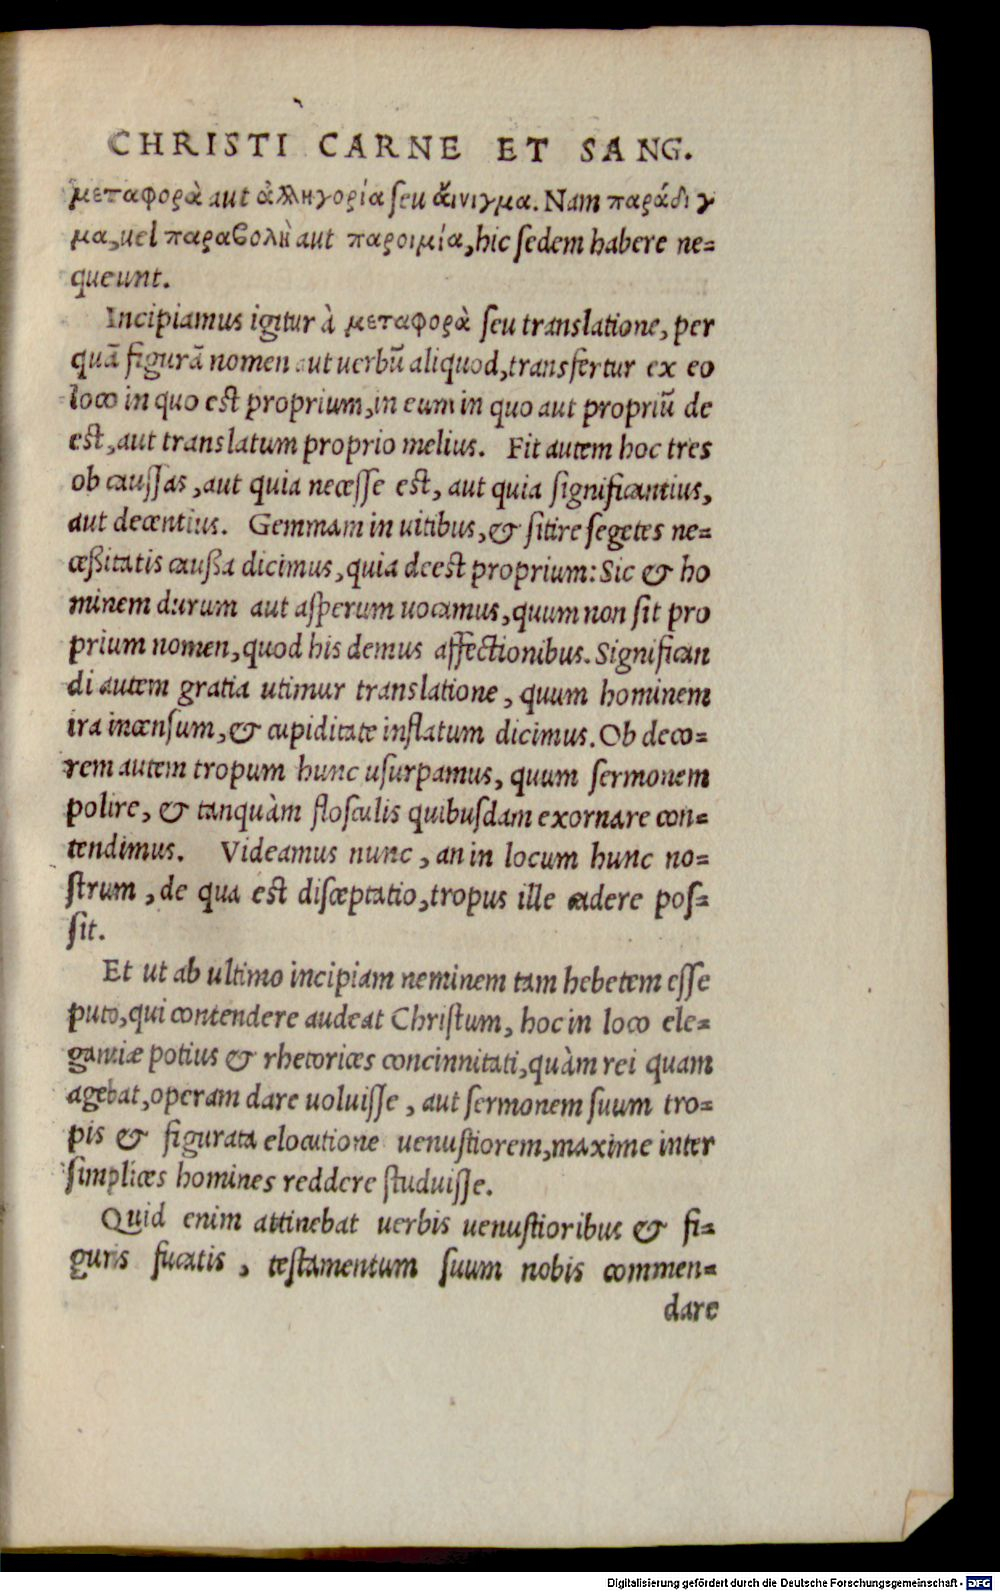 CHRISTI CARNE ET SANG.
μεταφορὰ aut ἀλληγορία seu ἄινιγμα. Nam παράδιγ
μα, uel παραβολὴ aut παροιμία, hic sedem habere ne=
queunt.
Incipiamus igitur à μεταφορὰ seu translatione, per
quã figurã nomen aut uerbũ aliquod, transfertur ex eo
loco in quo est proprium, in eum in quo aut propriũ de
est, aut translatum proprio melius. Fit autem hoc tres
ob caussas, aut quia necesse est, aut quia significantius,
aut decentius. Gemmam in uitibus, & sitire segetes ne=
ceßitatis caußa dicimus, quia deest proprium: Sic & ho
minem durum aut asperum uocamus, quum non sit pro
prium nomen, quod his demus affectionibus. Significan
di autem gratia utimur translatione, quum hominem
ira incensum, & cupiditate inflatum dicimus. Ob deco=
rem autem tropum hunc usurpamus, quum sermonem
polire, & tanquàm flosculis quibusdam exornare con=
tendimus. Videamus nunc, an in locum hunc no=
strum, de qua est disceptatio, tropus ille cadere pos=
sit.
Et ut ab ultimo incipiam neminem tam hebetem esse
puto, qui contendere audeat Christum, hoc in loco ele=
gantiæ potius & rhetorices concinnitati, quàm rei quam
agebat, operam dare uoluisse, aut sermonem suum tro=
pis & figurata elocutione uenustiorem, maxime inter
simplices homines reddere studuisse.
Quid enim attinebat uerbis uenustioribus & fi=
guris fucatis, testamentum suum nobis commen=
dare
Digitalisierung gefördert durch die Deutsche Forschungsgemeinschaft - DFG